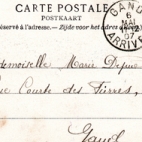 CARTE POSTALE
POSTKAART
réservé à l'adresse. — Zijde voor het adres
GAND
6
MAI
07
ARRIVÉE
demoiselle Marie Depue
Rue Courte des Pierres,
Gand